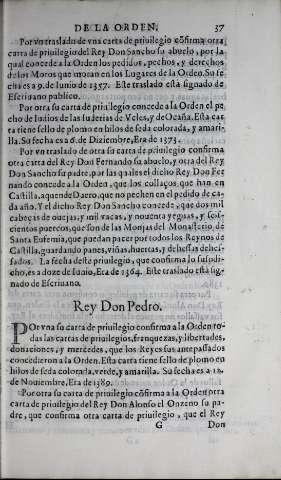 DE LA ORDEN. 37
Por vn traslado de vna carta de priuilegio cōfirma otra
carta de priuilegio del Rey Don Sancho su abuelo, por la
qual concede a la Orden los pedidos, pechos, y derechos
de los Moros que moran en los Lugares de la Orden. Su fe
cha es a 9. de Iunio de 1357. Este traslado està signado de
Escriuano publico.
Por otra su carta de priuilegio concede a la Orden el pe
cho de Iudios de las Iuderias de Veles, y de Ocaña. Esta car
ta tiene sello de plomo en hilos de seda colorada, y amari-
lla. Su fecha es a 6. de Diziembre, Era de 1373.
Por vn traslado de otra su carta de priuilegio confirma
otra carta del Rey Don Fernando su abuelo, y otra del Rey
Don Sancho su padre, por las quales el dicho Rey Don Fer
nando concede a la Orden, que los collaços que han en
Castilla, aquende Duero, que no pechen en el pedido de ca-
da año. Y el dicho Rey Don Sancho concede, que dos mil
cabeças de ouejas, y mil vacas, y nouenta yeguas, y
cientos puercos, que son de las Monjas del Monasterio de
Santa Eufemia, que puedan pacer por todos los Reynos de
Castilla, guardando panes, viñas, huertas, y dehessas dehes-
sadas. La fecha deste priuilegio, que confirma lo susodi-
cho, es a doze de Iunio, Era de 1364. Este traslado està sig-
nado de Escriuano.
Rey Don Pedro.
POr vna su carta de priuilegio confirma a la Orden to-
das las cartas de priuilegios, franquezas, y libertades,
donaciones, y mercedes, que los Reyes sus antepassados
concedieron a la Orden. Esta carta tiene sello de plomo en
hilos de seda colorada, verde, y amarilla. Su fecha es a 12.
de Nouiembre, Era de 1389.
Por otra su carta de priuilegio cōfirma a la Orden otra
carta de priuilegio del Rey Don Alonso el Onzeno su pa-
dre, que confirma otra carta de priuilegio, que el Rey
G Don